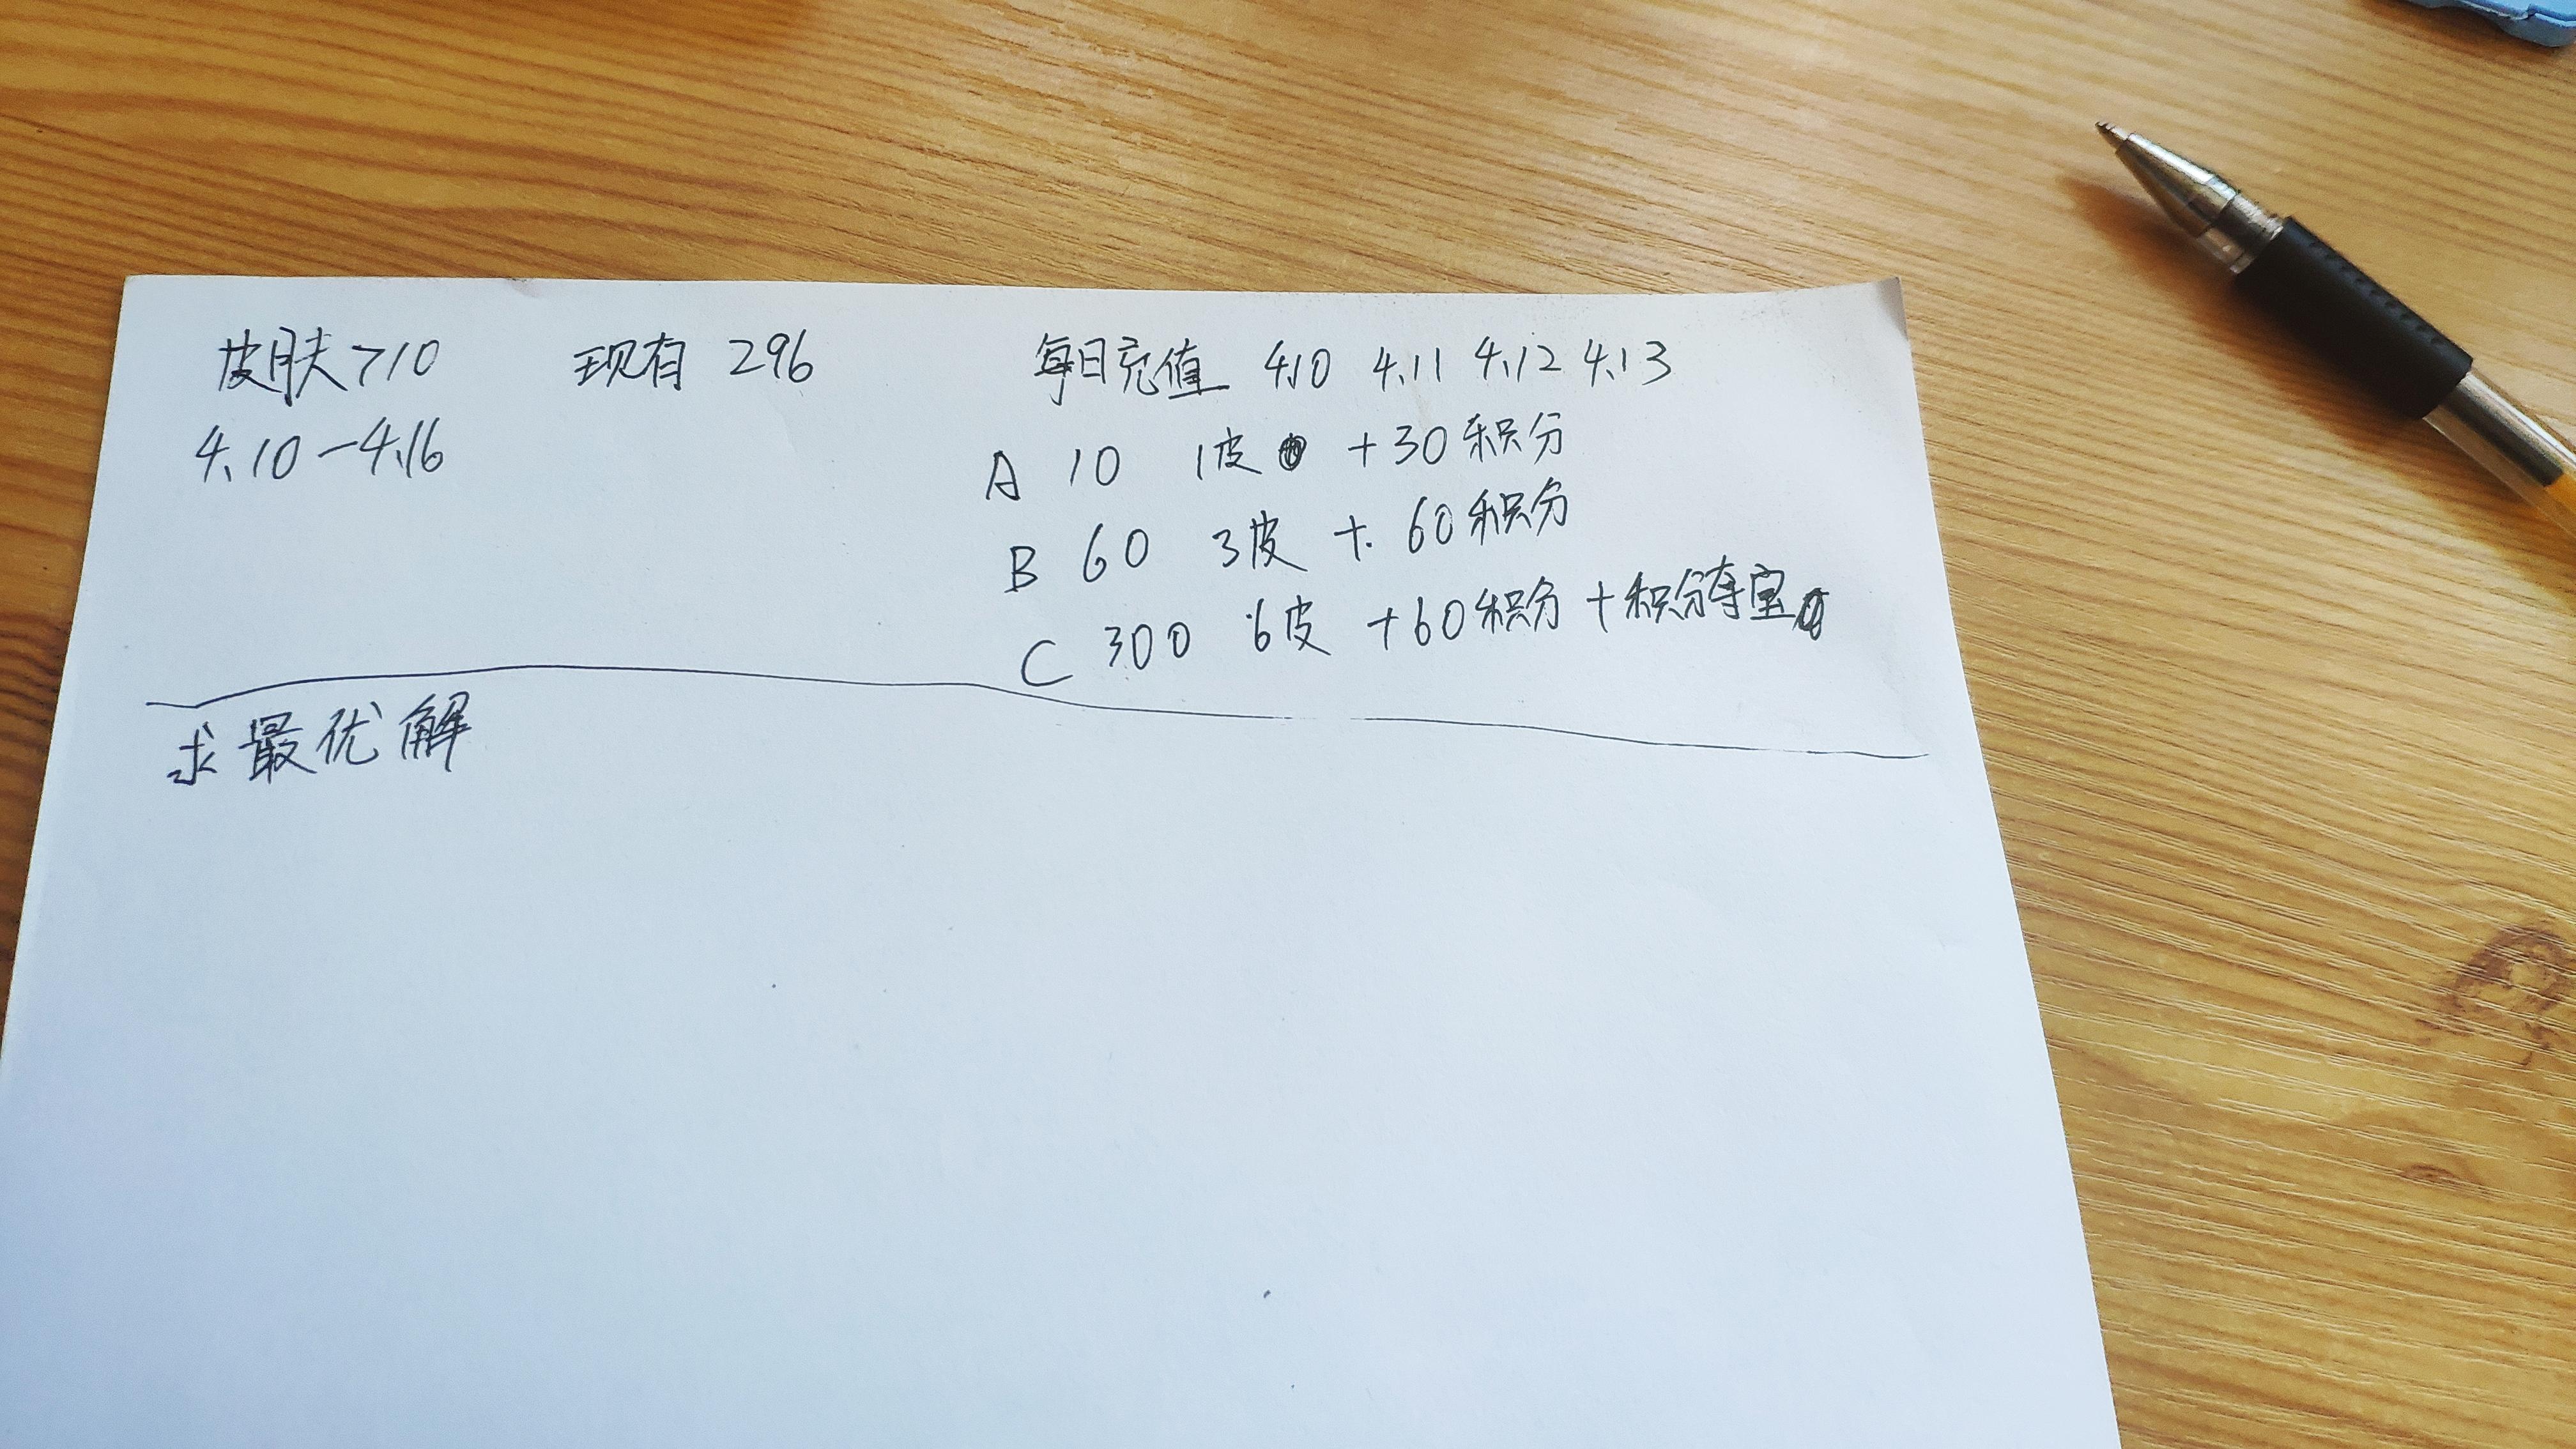 皮肤>10 现有 296 每日充值 4.10 4.11 4.12 4.13
4.10-4.16
A 10 1皮 +30积分
B 60 3皮 +60积分
C 300 6皮 +60积分+积分夺宝
求最优解